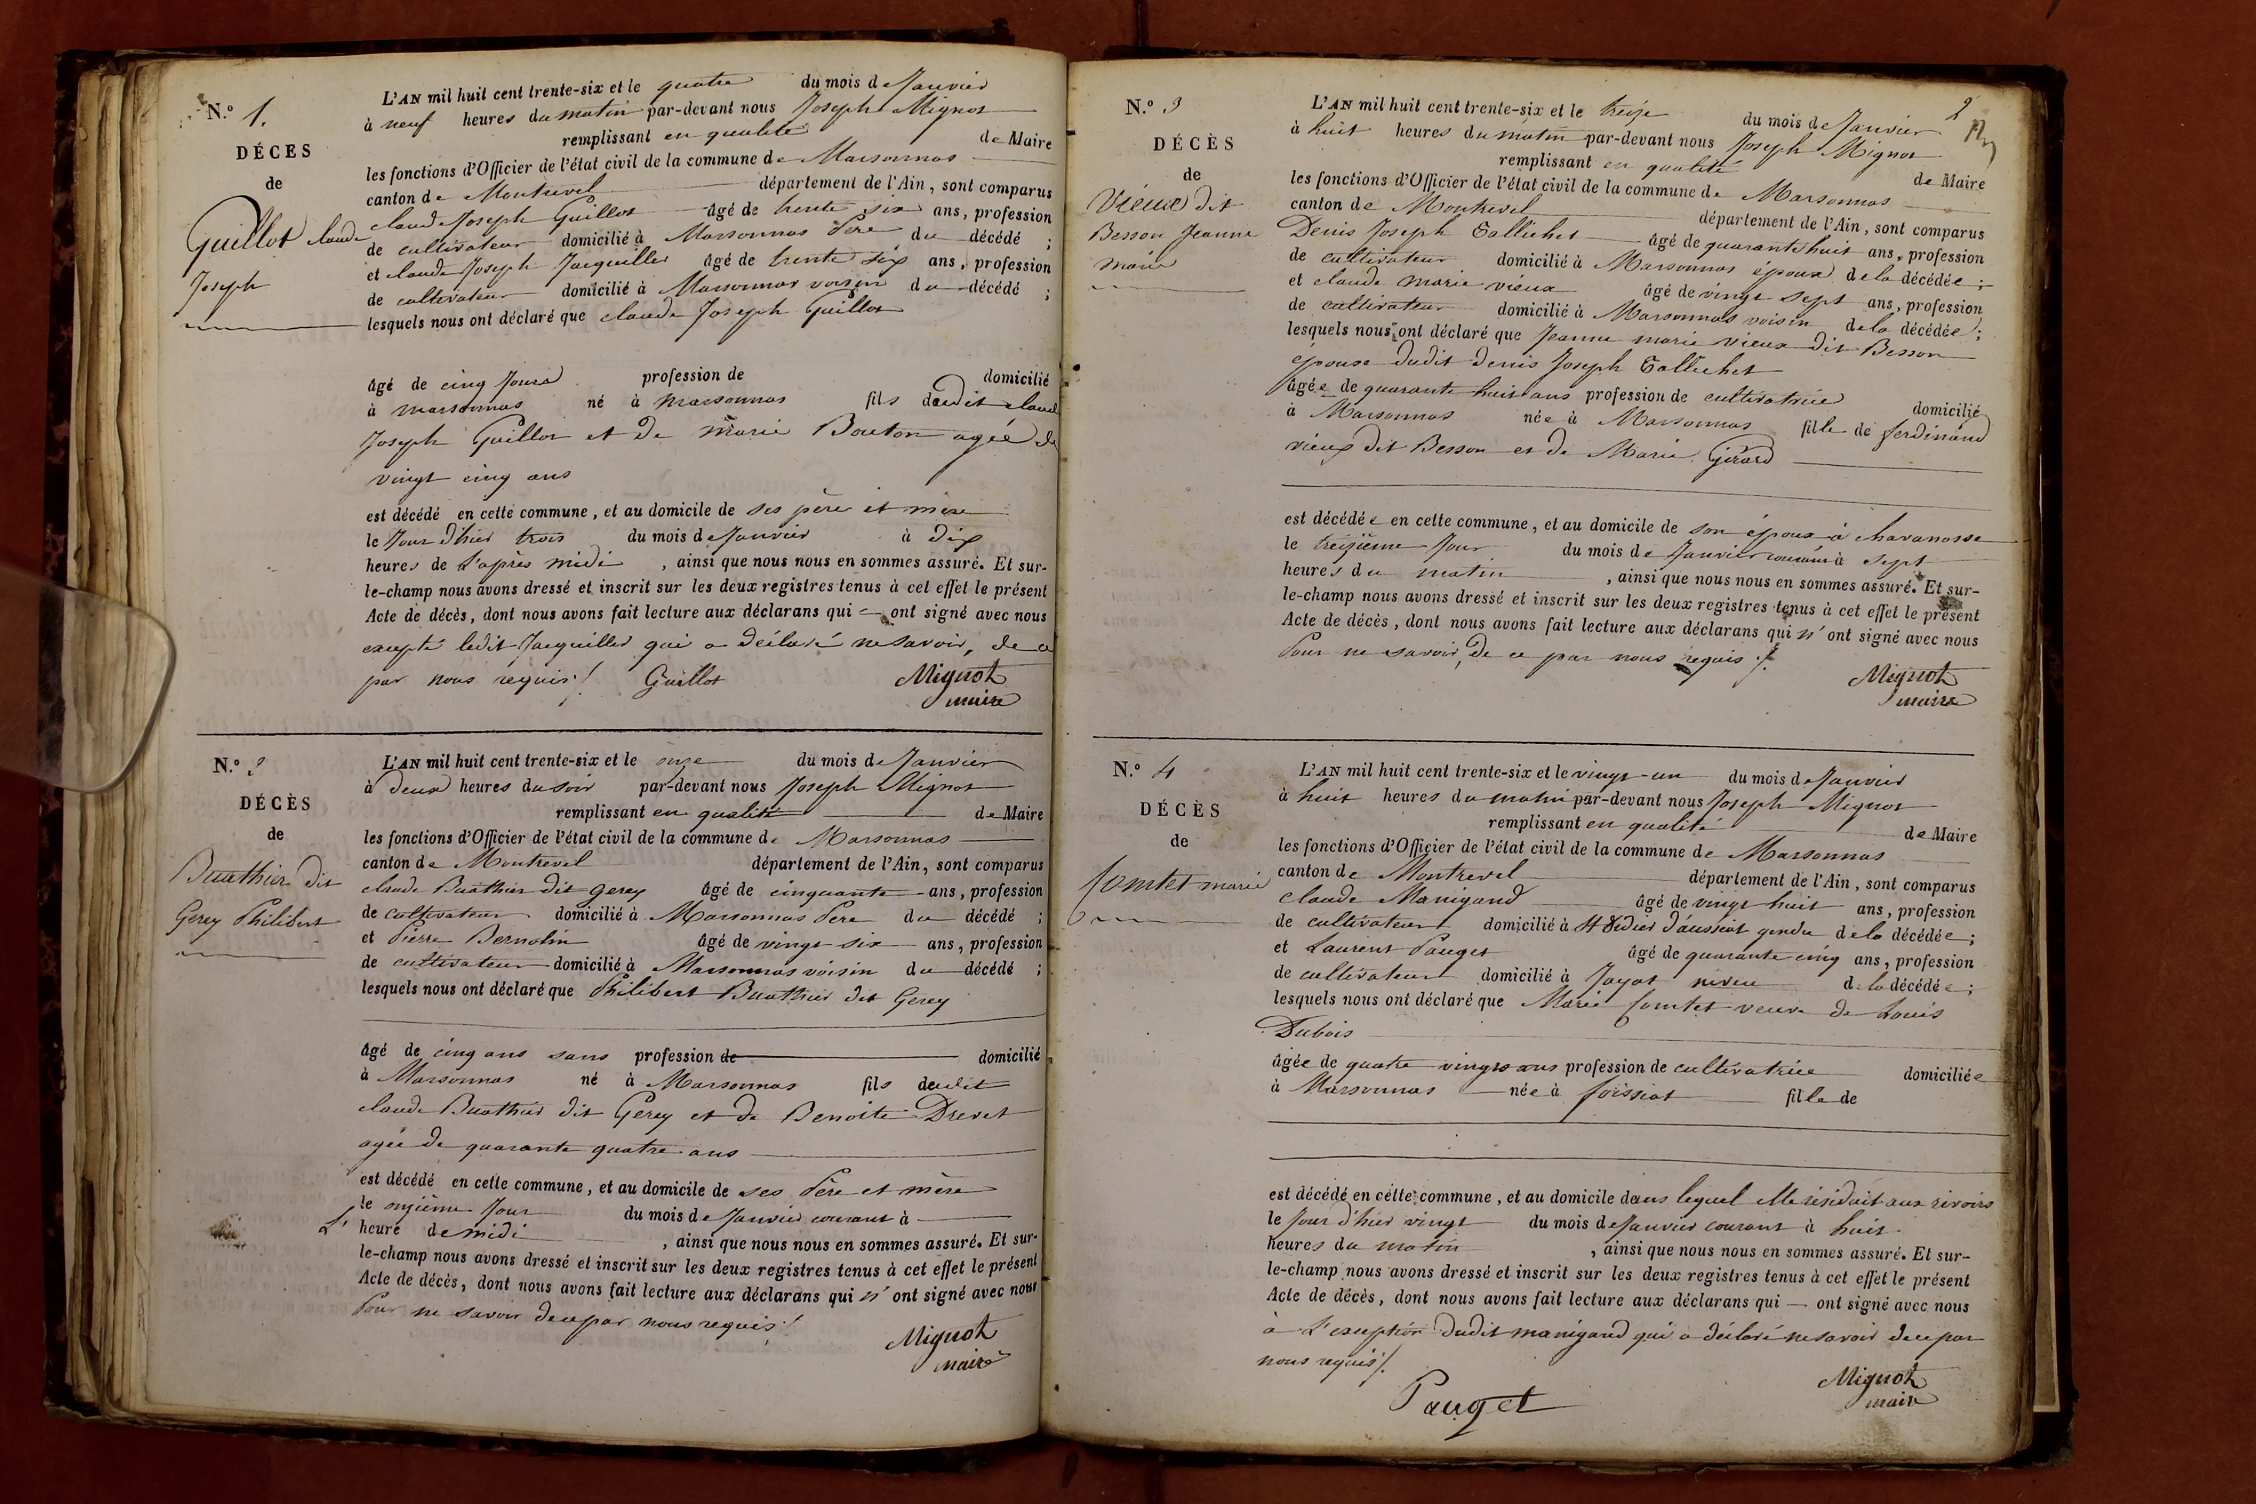 N.º 1.
DÉCES
de
Guillot claude
Joseph
L'AN mil huit cent trente-six et le quatre du mois de Janvier
à neuf heures du matin par-devant nous Joseph Mignot
remplissant en qualité de Maire
les fonctions d'Officier de l'état civil de la commune de Marsonnas
canton de Montrevel département de l'Ain, sont comparus
claude Joseph Guillot âgé de trente six ans, profession
de cultivateur domicilié à Marsonnas Père du décédé ;
et claude Joseph Jacquiller âgé de trente six ans, profession
de cultivateur domicilié à Marsonnas voisin du décédé ;
lesquels nous ont déclaré que claude Joseph Guillot
âgé de cinq Jours profession de domicilié
à marsonnas né à Marsonnas fils dudit claude
Joseph Guillot et de Marie Bouton agée de
vingt cinq ans
est décédé en cette commune, et au domicile de ses père et mère
le Jour d'hier trois du mois de Janvier à dix
heures de L'après midi, ainsi que nous nous en sommes assuré. Et sur-
le-champ nous avons dressé et inscrit sur les deux registres tenus à cet effet le présent
Acte de décès, dont nous avons fait lecture aux déclarans qui — ont signé avec nous
excepté ledit Jacquiller qui a déclaré ne savoir, de ce
par nous requis ./. Guillot Mignot
maire
N.º 2
DÉCÈS
de
Buathier dit
Gerey Philibert
L'AN mil huit cent trente-six et le onze du mois de Janvier
à deux heures du soir par-devant nous Joseph Mignot
remplissant en qualité de Maire
les fonctions d'Officier de l'état civil de la commune de Marsonnas
canton de Montrevel département de l'Ain, sont comparus
claude Buathier dit gerey âgé de cinquante ans, profession
de cultivateur domicilié à Marsonnas Père du décédé ;
et Pierre Bernolin âgé de vingt six ans, profession
de cultivateur domicilié à Marsonnas voisin du décédé ;
lesquels nous ont déclaré que Philibert Buathier dit Gerey
âgé de cinq ans sans profession de domicilié
à Marsonnas né à Marsonnas fils dudit
claude Buathier dit Gerey et de Benoite Drevet
agée de quarante quatre ans
est décédé en cette commune, et au domicile de ses Père et mère
le onzième Jour du mois de Janvier courant à
L' heure de midi, ainsi que nous nous en sommes assuré. Et sur-
le-champ nous avons dressé et inscrit sur les deux registres tenus à cet effet le présent
Acte de décès, dont nous avons fait lecture aux déclarans qui n' ont signé avec nous
Pour ne savoir de ce par nous requis ./.
Mignot
maire
2
N.º 3
DÉCÈS
de
Vieux dit
Besson Jeanne
marie
L'AN mil huit cent trente-six et le treize du mois de Janvier
à huit heures du matin par-devant nous Joseph Mignot
remplissant en qualité de Maire
les fonctions d'Officier de l'état civil de la commune de Marsonnas
canton de Montrevel département de l'Ain, sont comparus
Denis Joseph Tallichet âgé de quarante huit ans, profession
de cultivateur domicilié à Marsonnas époux de la décédée ;
et claude marie vieux âgé de vingt sept ans, profession
de cultivateur domicilié à Marsonnas voisin de la décédée ;
lesquels nous ont déclaré que Jeanne marie vieux dit Besson
épouse dudit Denis Joseph Tallichet
âgée de quarante huit ans profession de cultivatrice domicilié
à Marsonnas née à Marsonnas fille de ferdinand
vieux dit Besson et de Marie Girard
est décédée en cette commune, et au domicile de son époux à chavanosse
le treizième Jour du mois de Janvier courant à sept
heures du matin, ainsi que nous nous en sommes assuré. Et sur-
le-champ nous avons dressé et inscrit sur les deux registres tenus à cet effet le présent
Acte de décès, dont nous avons fait lecture aux déclarans qui n' ont signé avec nous
Pour ne savoir, de ce par nous requis ./.
Mignot
maire
N.º 4
DÉCÈS
de
Comtet marie
L'AN mil huit cent trente-six et le vingt-un du mois de Janvier
à huit heures du matin par-devant nous Joseph Mignot
remplissant en qualité de Maire
les fonctions d'Officier de l'état civil de la commune de Marsonnas
canton de Montrevel département de l'Ain, sont comparus
claude Manigand âgé de vingt huit ans, profession
de cultivateur domicilié à St Didier d'aussiat gendre de la décédée ;
et Laurent Pauget âgé de quarante cinq ans, profession
de cultivateur domicilié à Jayat neveu de la décédée ;
lesquels nous ont déclaré que Marie Comtet veuve de Louis
Dubois
âgée de quatre vingts ans profession de cultivatrice domiciliée
à Marsonnas née à foissiat fille de
est décédé en cette commune, et au domicile dans lequel elle résidait aux rivoirs
le Jour d'hier vingt du mois de Janvier courant à huit
heures du matin, ainsi que nous nous en sommes assuré. Et sur-
le-champ nous avons dressé et inscrit sur les deux registres tenus à cet effet le présent
Acte de décès, dont nous avons fait lecture aux déclarans qui — ont signé avec nous
à L'exception dudit manigand qui a déclaré ne savoir de ce par
nous requis ./.
Pauget
Mignot
maire